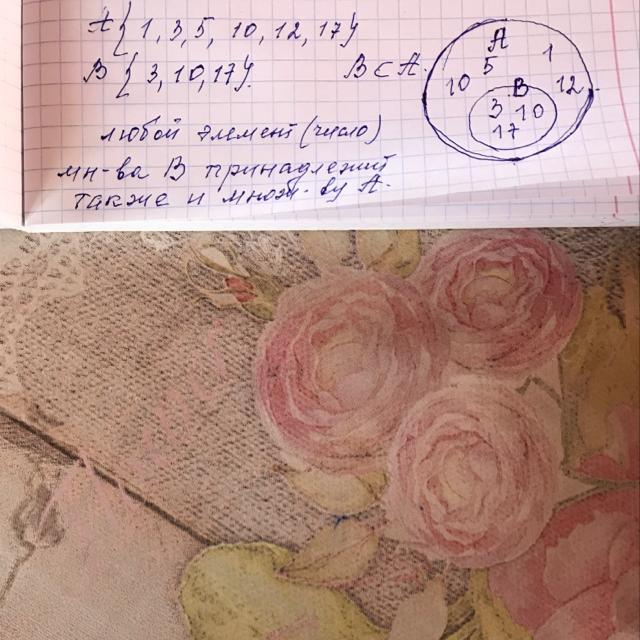 A { 1, 3, 5, 10, 12, 17}
B { 3, 10, 17}. B ⊂ A.
любой элемент (число)
мн-ва B принадлежит
также и множ-ву A.
A
5 1
10 12
B
3 10
17